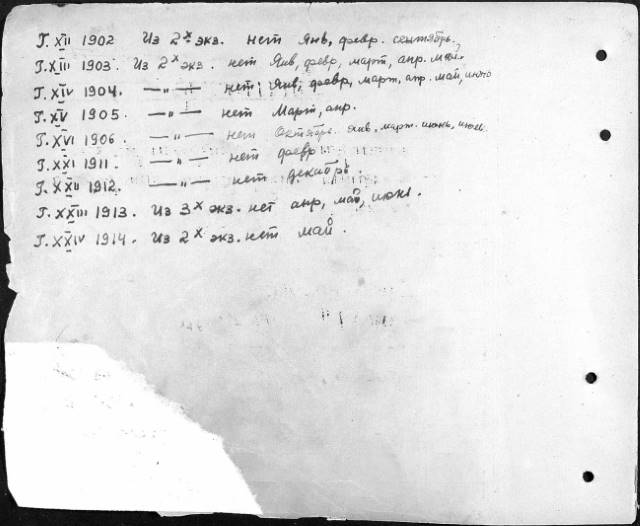 Т. XII 1902 Из 2х экз. нет Янв, февр. сентябрь.
Т. XIII 1903. Из 2х экз. нет Янв, февр, март, апр. июль.
Т. XIV 1904. —„— нет: Янв, февр, март, апр. май, июль
Т. XV 1905. —„— нет Март, апр.
Т. XVI 1906. —„— нет Октябрь. янв. март. июнь, июль.
Т. XXI 1911. —„— нет февр
Т. XXII 1912. —„— нет декабрь.
Т. XXIII 1913. Из 3х экз. нет апр, май, июнь.
Т. XXIV 1914. Из 2х экз. нет май.